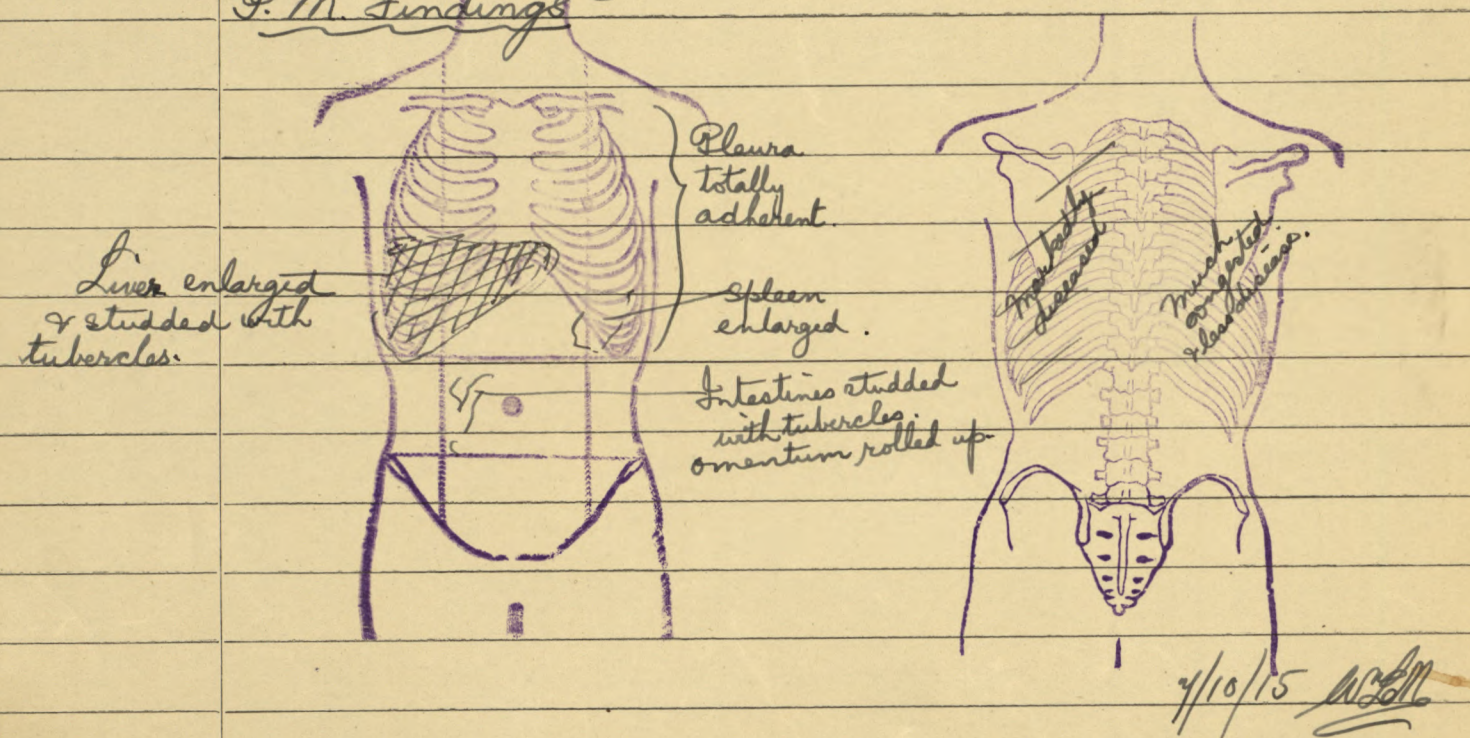 P. M. Findings
Pleura
totally
adherent.
Liver enlarged
& studded with
tubercles.
Spleen
enlarged.
Intestines studded
with tubercles.
omentum rolled up
Markedly
diseased
Much
congested
& less disease.
7/10/15